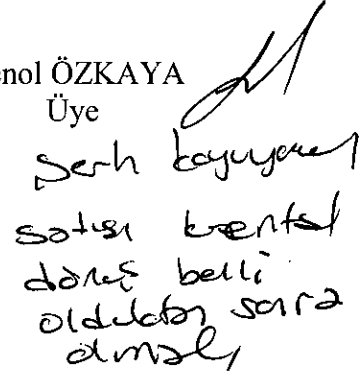 enol ÖZKAYA
Üye
Şerh koyuyorum
satışı kentsel
dönüş belli
olduktan sonra
olmalı